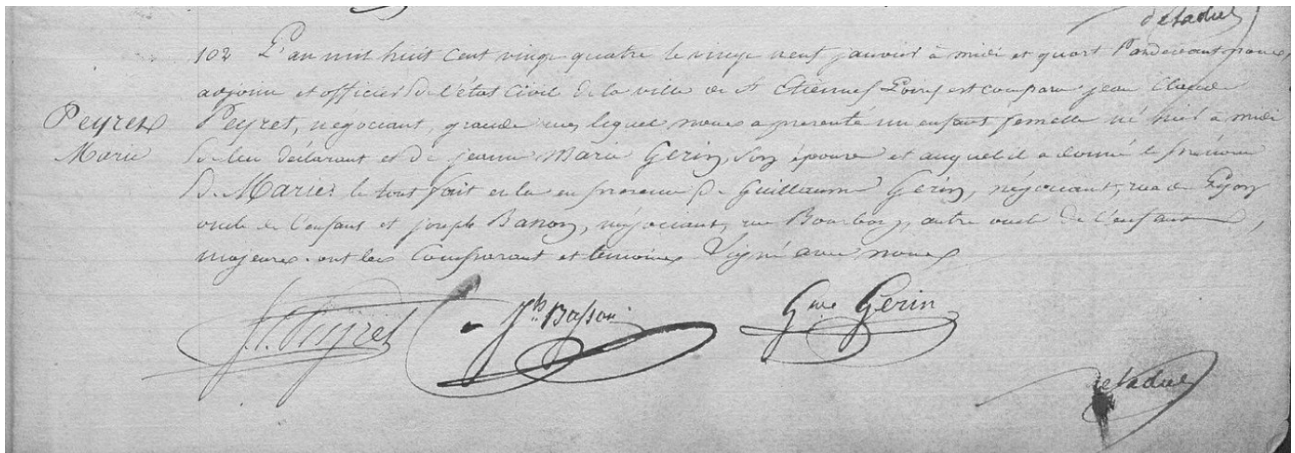 102 L'an mil huit cent vingt quatre le vingt neuf janvier à midi et quart Pardevant nous,
adjoint et officier de l'état civil de la ville de St Etienne (Loire) est comparu jean Claude
Peyret
Marie
Peyret, négociant, grande rue, lequel nous a présenté un enfant femelle né hier à midi
de lui déclarant et de jeanne Marie Gerin, son épouse et auquel il a donné le prénom
de Marie, le tout fait en la présence de Guillaume Gerin, négociant, rue de Lyon
oncle de l'enfant et joseph Basson, négociant, rue Bourbon, autre oncle de l'enfant,
majeurs. ont les comparant et témoins signé avec nous
J. C. Peyret
Jh Basson
Gme Gerin